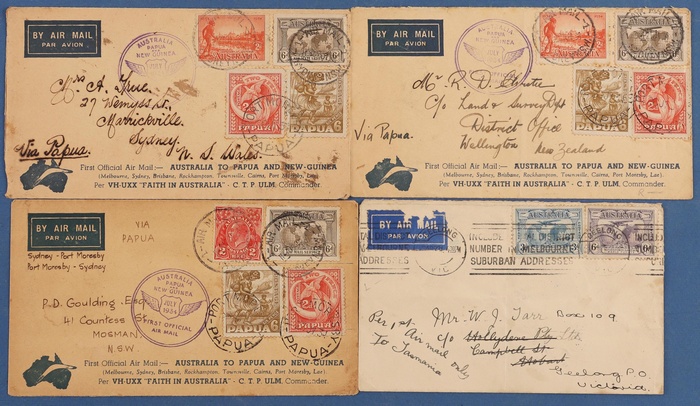 BY AIR MAIL
PAR AVION
AUSTRALIA
PAPUA
NEW GUINEA
JULY
1934
AUSTRALIA
6d
PAPUA
PAPUA
6d
Mrs A. True.
27 Wemyss St.
Marrickville.
Sydney.
N. S. Wales.
Via Papua.
First Official Air Mail:— AUSTRALIA TO PAPUA AND NEW-GUINEA
(Melbourne, Sydney, Brisbane, Rockhampton, Townsville, Cairns, Port Moresby, Lae)
Per VH-UXX "FAITH IN AUSTRALIA" - C. T. P. ULM. Commander.
BY AIR MAIL
PAR AVION
AUSTRALIA
PAPUA
NEW GUINEA
JULY
1934
AUSTRALIA
6d
PAPUA
PAPUA
Mr R. D.
C/o Land & Survey Dept
District Office
Wellington New Zealand
Via Papua.
First Official Air Mail:— AUSTRALIA TO PAPUA AND NEW-GUINEA
(Melbourne, Sydney, Brisbane, Rockhampton, Townsville, Cairns, Port Moresby, Lae)
Per VH-UXX "FAITH IN AUSTRALIA" - C. T. P. ULM. Commander.
BY AIR MAIL
PAR AVION
VIA
PAPUA
Sydney - Port Moresby
Port Moresby - Sydney
AUSTRALIA
PAPUA
NEW GUINEA
JULY
1934
FIRST OFFICIAL
AIR MAIL
2
6d
PAPUA 6d
PAPUA
P. D. Goulding Esq
41 Countess St
MOSMAN
N.S.W
First Official Air Mail:— AUSTRALIA TO PAPUA AND NEW-GUINEA
(Melbourne, Sydney, Brisbane, Rockhampton, Townsville, Cairns, Port Moresby, Lae)
Per VH-UXX "FAITH IN AUSTRALIA" - C. T. P. ULM. Commander.
BY AIR MAIL
PAR AVION
VIC
AUSTRALIA
3d
AUSTRALIA
6d
GEELONG
INCLUDE
POSTAL DISTRICT
NUMBER IN MELBOURNE
SUBURBAN ADDRESSES
INCLUDE
NUMBER
SUBURBAN
ADDRESSES
Mr. W. J. Tarr Box 109
C/o Hollydene Pty Ltd
Campbell St
Hobart
Geelong P.O.
Victoria.
Per
Air mail only
to Tasmania